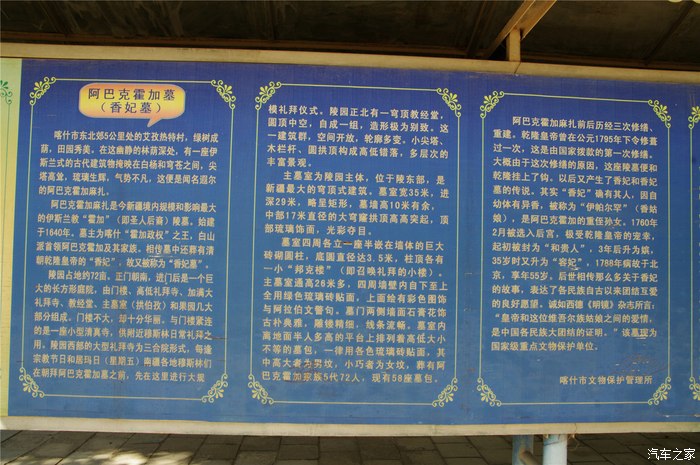 阿巴克霍加墓
（香妃墓）
喀什市东北郊5公里处的艾孜热特村，绿树成
荫，田园秀美。在这幽静的林荫深处，有一座伊
斯兰式的古代建筑物掩映在白杨和穹苍之间，尖
塔高耸，琉璃生辉，气势不凡，这便是闻名遐尔
的阿巴克霍加麻扎。
阿巴克霍加麻扎是今新疆境内规模和影响最大
的伊斯兰教“霍加”（即圣人后裔）陵墓，始建
于1640年。墓主为喀什“霍加政权”之王，白山
派首领阿巴克霍加及其家族。相传墓中还葬有清
朝乾隆皇帝的“香妃”，故又被称为“香妃墓”。
陵园占地约72亩，正门朝南，进门后是一个巨
大的长方形庭院，由门楼、高低礼拜寺、加满大
礼拜寺、教经堂、主墓室（拱伯孜）和果园几大
部分组成。门楼不大，却十分华丽。与门楼紧连
的是一座小型清真寺，供附近穆斯林日常礼拜之
用。陵园西部的大型礼拜寺为三合院形式，每逢
宗教节日和居玛日（星期五）南疆各地穆斯林们
在朝拜阿巴克霍加墓之前，先在这里进行大规
模礼拜仪式。陵园正北有一穹顶教经堂，
圆顶中空，自成一组，造形极为别致。这
一建筑群，空间开放，轮廓多变。小尖塔、
木栏杆、圆拱顶构成高低错落，多层次的
丰富景观。
主墓室为陵园主体，位于陵东部，是
新疆最大的穹顶式建筑。墓室宽35米，进
深29米，略呈矩形，墓墙高10米有余，
中部17米直径的大穹窿拱顶高高突起，顶
部琉璃饰面，光彩夺目。
墓室四周各立一座半嵌在墙体的巨大
砖砌圆柱，底圆直径达3.5米，柱顶各有
一小“邦克楼”（即召唤礼拜的小楼）。
主墓室通高26米多，四周墙壁内自下至上
全用绿色琉璃砖贴面，上面绘有彩色图饰
与阿拉伯文警句。墓门两侧墙面石膏花饰
古朴典雅，雕镂精细，线条流畅。墓室内
高地面半人多高的平台上排列着高低大小
不等的墓包，一律用各色琉璃砖贴面，其
中高大者为男坟，小巧者为女坟，葬有阿
巴克霍加家族5代72人，现有58座墓包。
阿巴克霍加麻扎前后历经三次修缮、
重建。乾隆皇帝曾在公元1795年下令修葺
过一次，这是由国家拨款的第一次修缮。
大概由于这次修缮的原因，这座陵墓便和
乾隆挂上了钩。以后又产生了香妃和香妃
墓的传说。其实“香妃”确有其人，因自
幼体有异香，被称为“伊帕尔罕”（香姑
娘），是阿巴克霍加的重侄孙女。1760年
2月被选入后宫，极受乾隆皇帝的宠幸，
起初被封为“和贵人”，3年后升为嫔，
35岁时又升为“容妃”，1788年病故于北
京，享年55岁。后世相传那么多关于香妃
的故事，表达了各民族自古以来团结互爱
的良好愿望。诚如西德《明镜》杂志所言：
“皇帝和这位维吾尔族姑娘之间的爱情，
是中国各民族大团结的证明。”该墓现为
国家级重点文物保护单位。
喀什市文物保护管理所
汽车之家